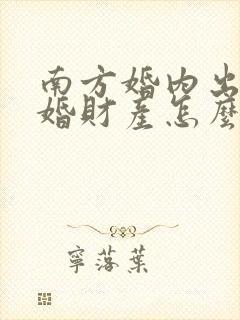 南方婚内出
婚財產怎麼
寧落葉